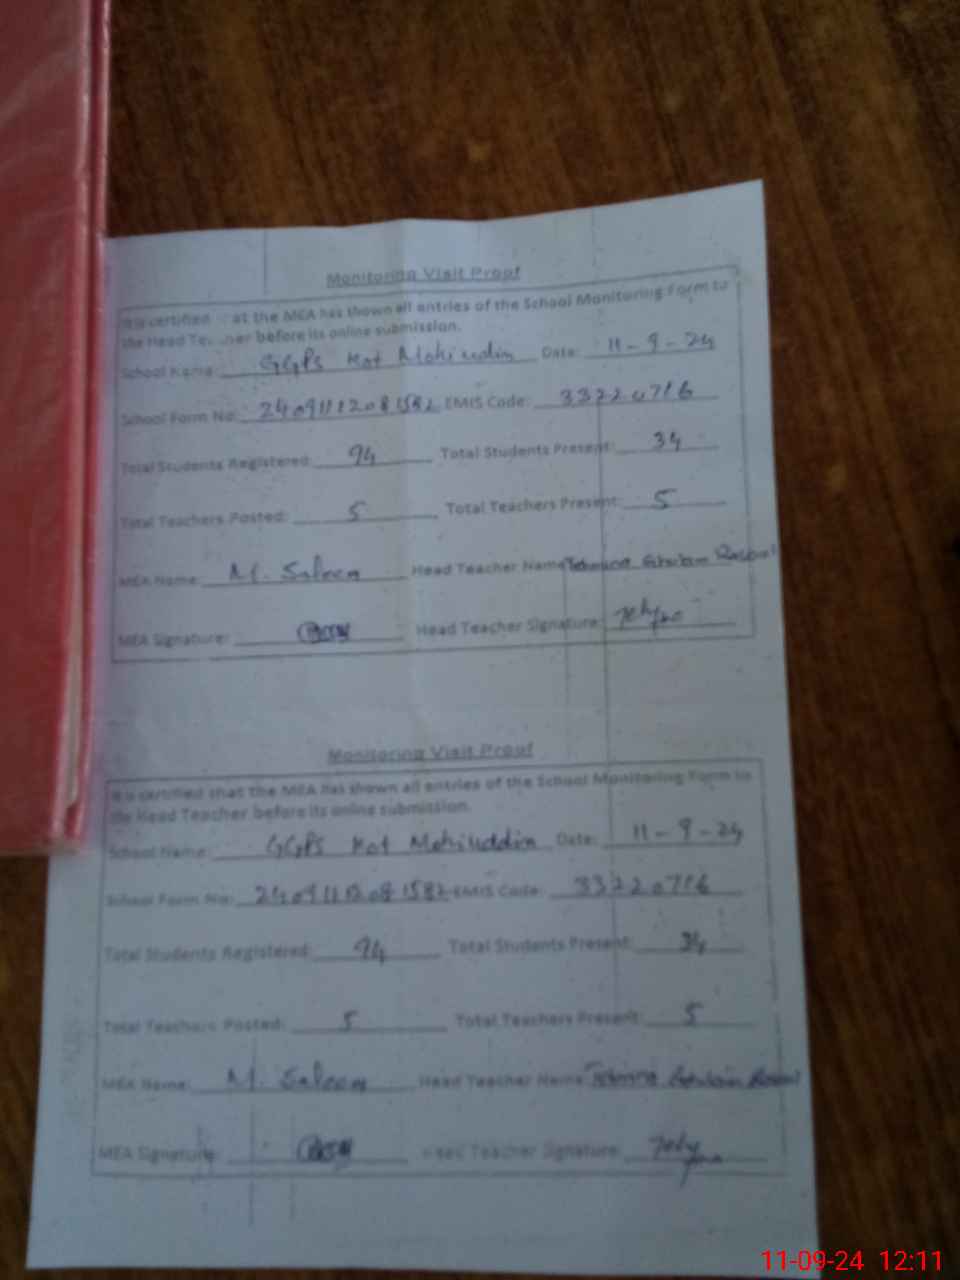 Monitoring Visit Proof
It is certified at the MEA has shown all entries of the School Monitoring Form to
the Head before its online submission.
School Name: GGPS Kot Mohiuddin Date: 11-9-24
School Form No: EMIS Code: 33220716
Total Students Registered: 94 Total Students Present: 34
Total Teachers Posted: 5 Total Teachers Present: 5
MEA Name: M. Saleem Head Teacher Name: Tehmina Ghulam Rasool
MEA Signature: Head Teacher Signature:
Monitoring Visit Proof
It is certified that the MEA has shown all entries of the School Monitoring Form to
the Head Teacher before its online submission.
School Name: GGPS Kot Mohiuddin Date: 11-9-24
School Form No: EMIS Code: 33220716
Total Students Registered: 94 Total Students Present: 34
Total Teachers Posted: 5 Total Teachers Present: 5
MEA Name: M. Saleem Head Teacher Name: Tehmina Ghulam Rasool
MEA Signature: Head Teacher Signature:
11-09-24 12:11